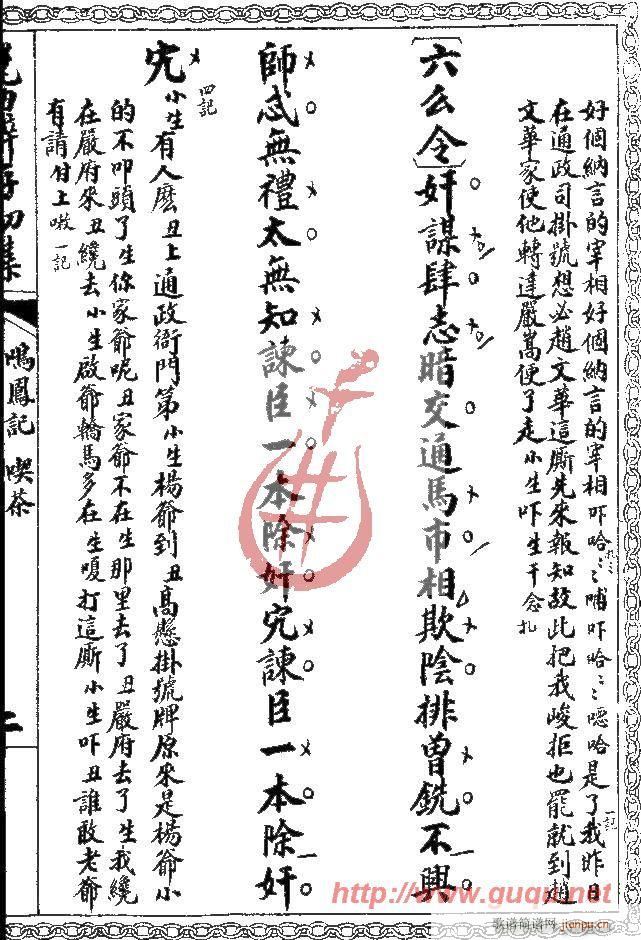 好個納言的宰相好個納言的宰相吓哈ミミ哺吓哈ミミ噁哈是了我昨日
扎ミ
一記
在通政司掛號想必趙文華這厮先來報知故此把我峻拒也罷就到趙
文華家使他轉達嚴嵩便了走小生吓生干念扎
〔六么令〕奸謀肆志暗交通馬市相欺陰排曾銑不興
師忒無禮太無知諫臣一本除奸宄諫臣一本除奸
宄
四記
小生有人麽丑上通政衙門第小生楊爺到丑高懸掛號牌原來是楊爺小
的不叩頭了生你家爺呢丑家爺不在生那里去了丑嚴府去了生我纔
在嚴府來丑纔去小生啟爺轎馬多在生嗄打這厮小生吓丑誰敢老爺
有請付上噷一記
鳴鳳記 喫茶
二
http://www.guqu.net
歌谱简谱网 jianpu.cn